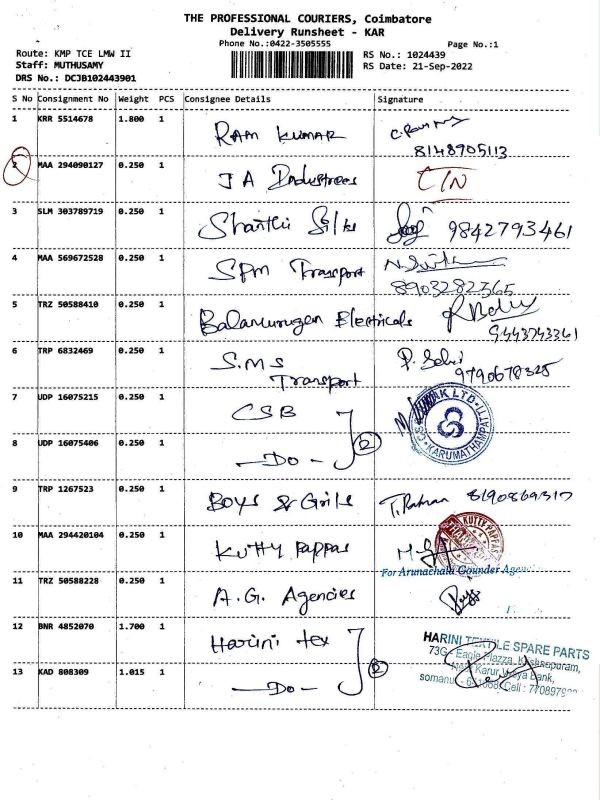 THE PROFESSIONAL COURIERS, Coimbatore
Delivery Runsheet - KAR
Phone No.:0422-3505555
Page No.:1
Route: KMP TCE LMW II
RS No.: 1024439
Staff: MUTHUSAMY
RS Date: 21-Sep-2022
DRS No.: DCJB102443901
S No Consignment No Weight PCS Consignee Details Signature
1 KRR 5514678 1.800 1 RAM KUMAR
8148905113
2 MAA 294090127 0.250 1 JA Industrees CTN
3 SLM 303789719 0.250 1 Shanthi Silks 9842793461
4 MAA 569672528 0.250 1 SPM Transport
8903282365
5 TRZ 50588410 0.250 1 Balamurugan Electricals
9443743341
6 TRP 6832469 0.250 1 S.M.S
Transport
9790678325
7 UDP 16075215 0.250 1 CSB
KARUMATHAMPATTI
8 UDP 16075406 0.250 1 -Do- 2
9 TRP 1267523 0.250 1 Boys & Girls 8190869317
10 MAA 294420104 0.250 1 Kutty Pappas
KUTTY PAPPAS
For Arunachala Gounder
11 TRZ 50588228 0.250 1 A.G. Agencies
12 BNR 4852070 1.700 1 Harini tex
HARINI TEXTILE SPARE PARTS
13 KAD 808309 1.015 1 -Do- 2